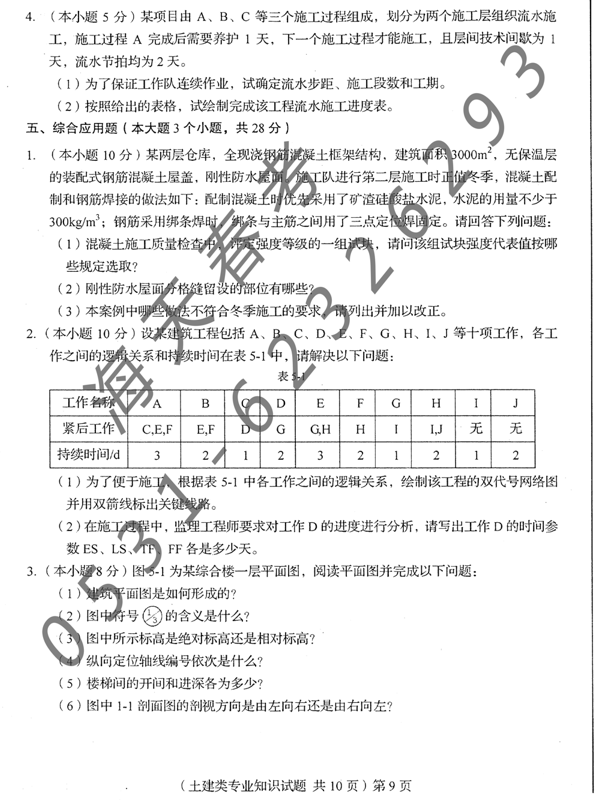 4. （本小题 5 分）某项目由 A、B、C 等三个施工过程组成，划分为两个施工层组织流水施
工，施工过程 A 完成后需要养护 1 天，下一个施工过程才能施工，且层间技术间歇为 1
天，流水节拍均为 2 天。
（1）为了保证工作队连续作业，试确定流水步距、施工段数和工期。
（2）按照给出的表格，试绘制完成该工程流水施工进度表。
五、综合应用题（本大题 3 个小题，共 28 分）
1. （本小题 10 分）某两层仓库，全现浇钢筋混凝土框架结构，建筑面积 3000m²，无保温层
的装配式钢筋混凝土屋盖，刚性防水屋面。施工队进行第二层施工时正值冬季，混凝土配
制和钢筋焊接的做法如下：配制混凝土时优先采用了矿渣硅酸盐水泥，水泥的用量不少于
300kg/m³；钢筋采用绑条焊时，绑条与主筋之间用了三点定位焊固定。请回答下列问题：
（1）混凝土施工质量检查中，评定强度等级的一组试块，请问该组试块强度代表值按哪
些规定选取？
（2）刚性防水屋面分格缝留设的部位有哪些？
（3）本案例中哪些做法不符合冬季施工的要求，请列出并加以改正。
2. （本小题 10 分）设某建筑工程包括 A、B、C、D、E、F、G、H、I、J 等十项工作，各工
作之间的逻辑关系和持续时间在表 5-1 中，请解决以下问题：
表 5-1
工作名称 A B C D E F G H I J
紧后工作 C,E,F E,F D G G,H H I I,J 无 无
持续时间/d 3 2 1 2 3 2 1 2 1 2
（1）为了便于施工，根据表 5-1 中各工作之间的逻辑关系，绘制该工程的双代号网络图
并用双箭线标出关键线路。
（2）在施工过程中，监理工程师要求对工作 D 的进度进行分析，请写出工作 D 的时间参
数 ES、LS、TF、FF 各是多少天。
3. （本小题 8 分）图 5-1 为某综合楼一层平面图，阅读平面图并完成以下问题：
（1）建筑平面图是如何形成的？
（2）图中符号 1/3 的含义是什么？
（3）图中所示标高是绝对标高还是相对标高？
（4）纵向定位轴线编号依次是什么？
（5）楼梯间的开间和进深各为多少？
（6）图中 1-1 剖面图的剖视方向是由左向右还是由右向左？
（土建类专业知识试题 共 10 页）第 9 页
海天春考
0531-62326293